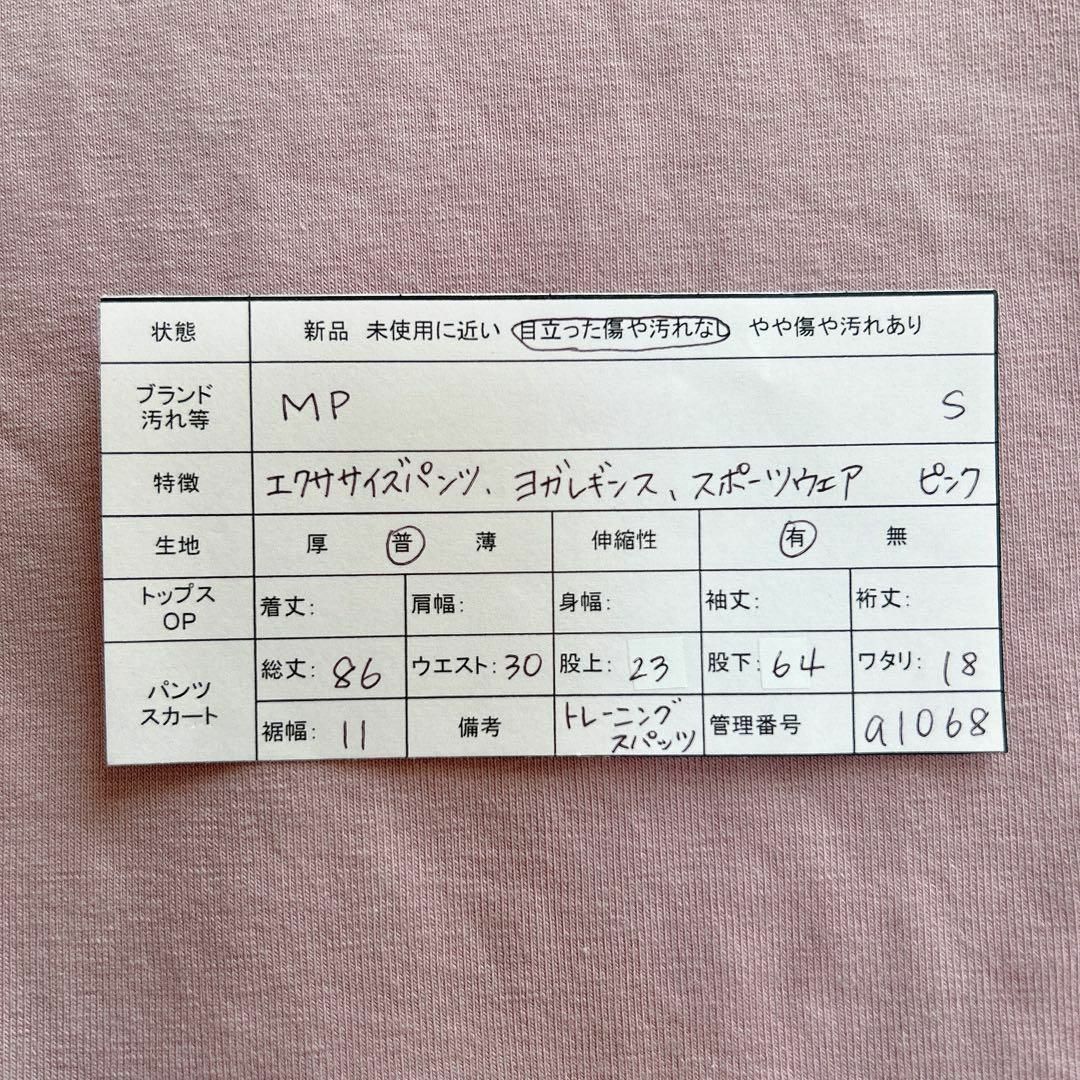 状態 新品 未使用に近い 目立った傷や汚れなし やや傷や汚れあり
ブランド
汚れ等 MP S
特徴 エクササイズパンツ、ヨガレギンス、スポーツウェア ピンク
生地 厚 普 薄 伸縮性 有 無
トップス
OP 着丈: 肩幅: 身幅: 袖丈: 裄丈:
パンツ
スカート
総丈: 86 ウエスト: 30 股上: 23 股下: 64 ワタリ: 18
裾幅: 11 備考 トレーニング
スパッツ 管理番号 a1068